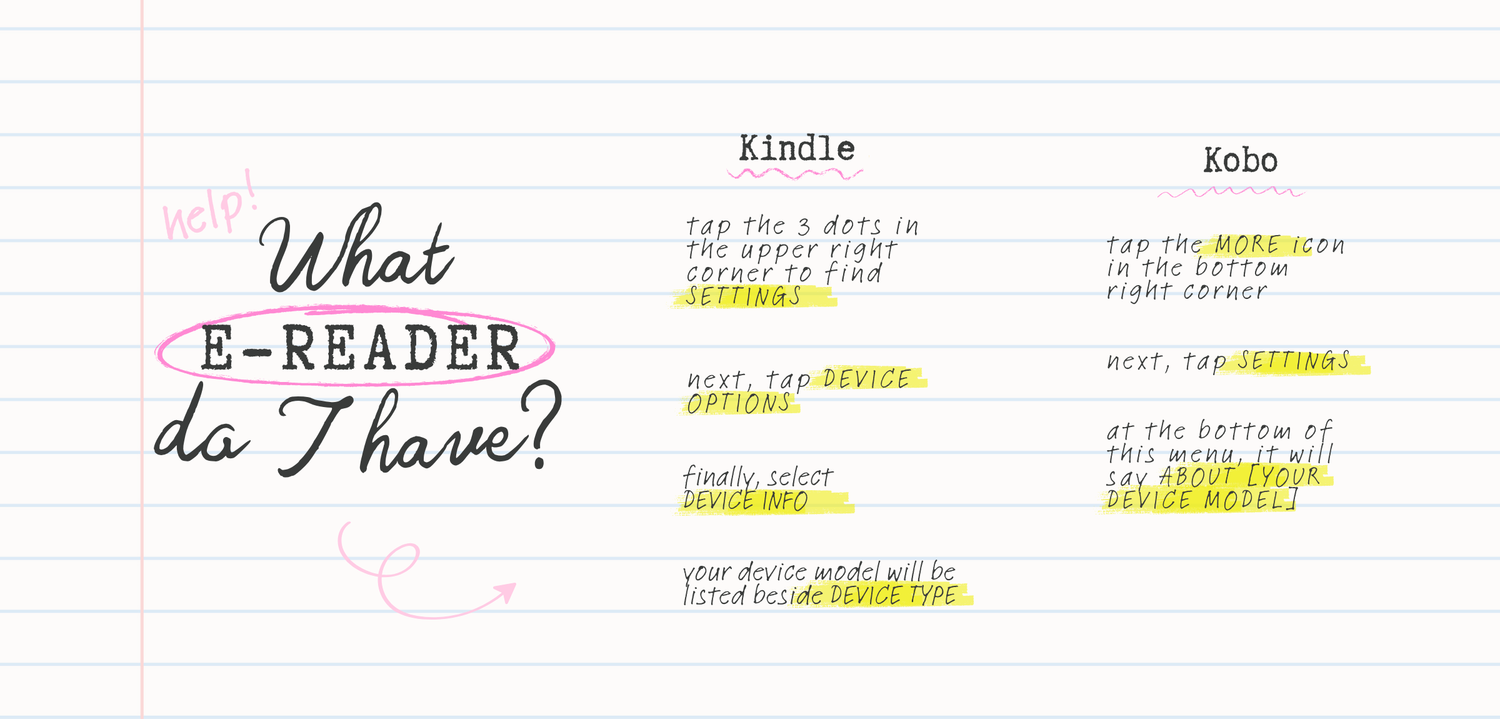 help!
What
E-READER
do I have?
Kindle
tap the 3 dots in
the upper right
corner to find
SETTINGS
next, tap DEVICE
OPTIONS
finally, select
DEVICE INFO
your device model will be
listed beside DEVICE TYPE
Kobo
tap the MORE icon
in the bottom
right corner
next, tap SETTINGS
at the bottom of
this menu, it will
say ABOUT [YOUR
DEVICE MODEL]